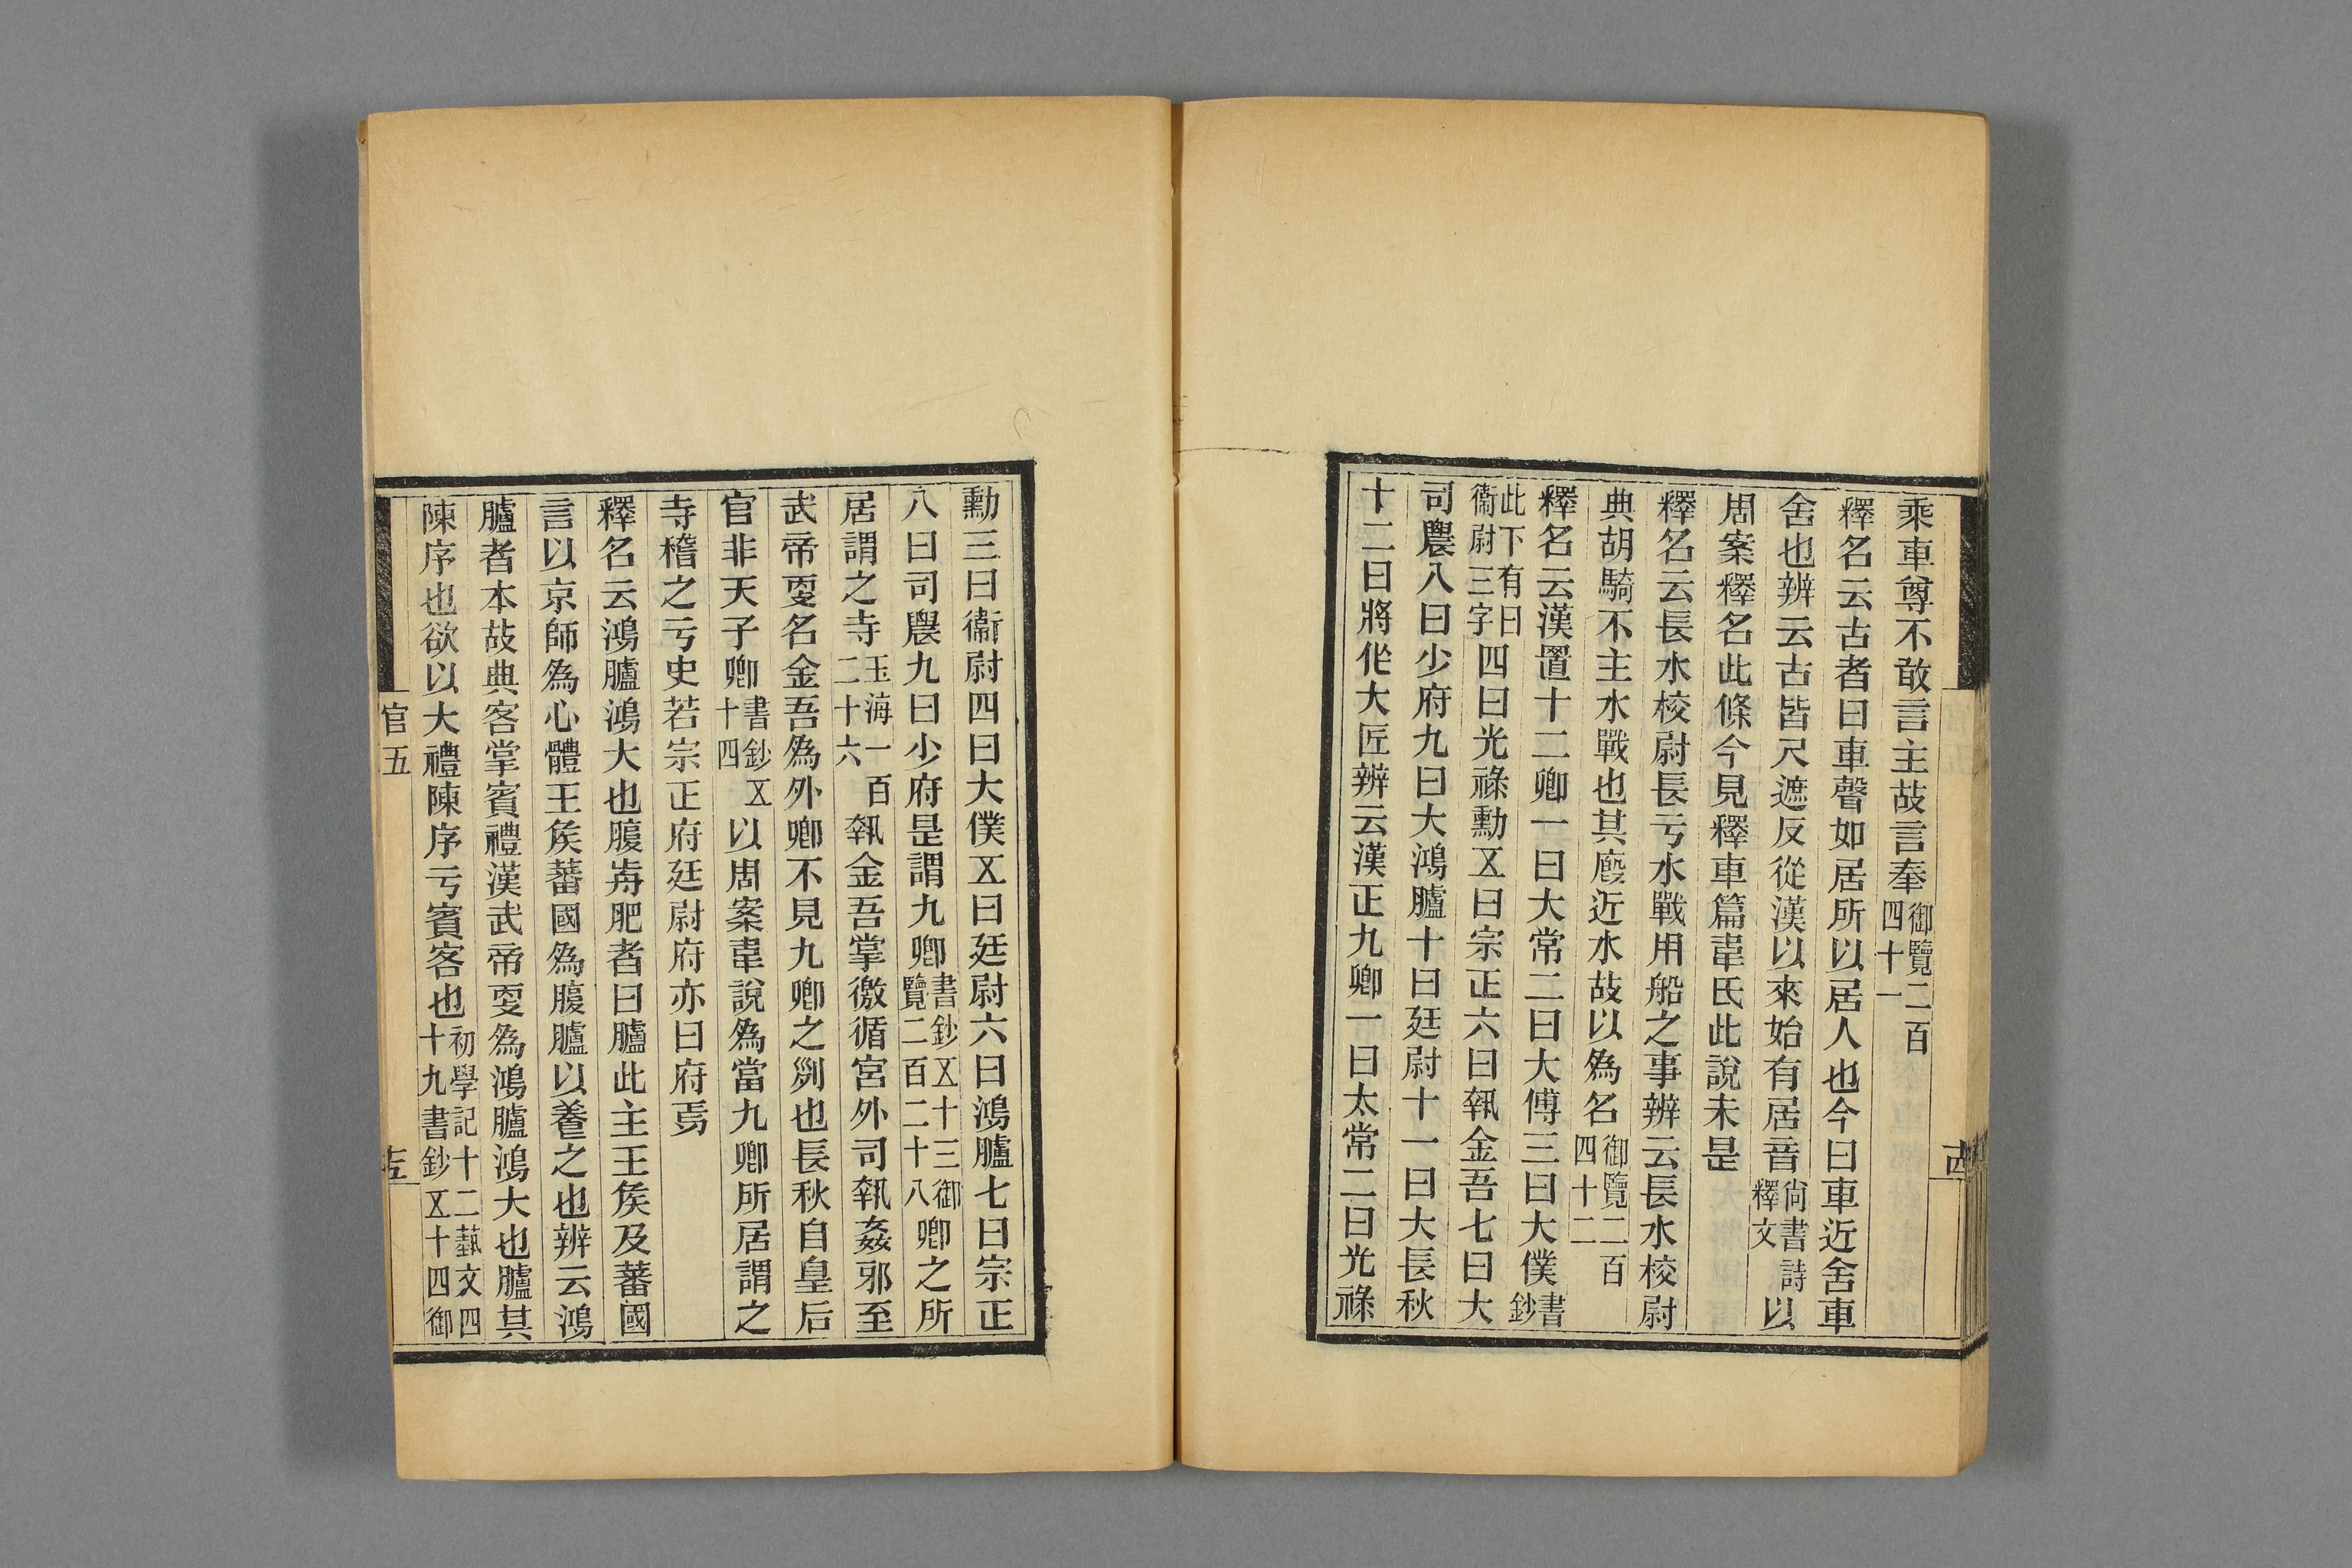 乘車尊不敢言主故言奉御覽二百四十一
釋名云古者曰車聲如居所以居人也今曰車近舍車
舍也辨云古皆尺遮反從漢以來始有居音尙書詩釋文以
周案釋名此條今見釋車篇韋氏此說未是
釋名云長水校尉長亏水戰用船之事辨云長水校尉
典胡騎不主水戰也其廄近水故以為名御覽二百四十二
釋名云漢置十二卿一曰大常二曰大傅三曰大僕書鈔
此下有曰衞尉三字四曰光祿勳㐅曰宗正六曰執金吾七曰大
司農八曰少府九曰大鴻臚十曰廷尉十一曰大長秋
十二曰將作大匠辨云漢正九卿一曰太常二曰光祿
古
勳三曰衞尉四曰大僕㐅曰廷尉六曰鴻臚七曰宗正
八曰司農九曰少府是謂九卿書鈔㐅十三御覽二百二十八卿之所
居謂之寺玉海一百二十六執金吾掌徼循宮外司執姦邪至
武帝叓名金吾為外卿不見九卿之列也長秋自皇后
官非天子卿書鈔㐅十四以周案韋說為當九卿所居謂之
寺稽之亏史若宗正府廷尉府亦曰府焉
釋名云鴻臚鴻大也腹歬肥者曰臚此主王矦及蕃國
言以京師為心體王矦蕃國為腹臚以養之也辨云鴻
臚者本故典客掌賓禮漢武帝叓為鴻臚鴻大也臚其
陳序也欲以大禮陳序亏賓客也初學記十二藝文四十九書鈔㐅十四御
官五